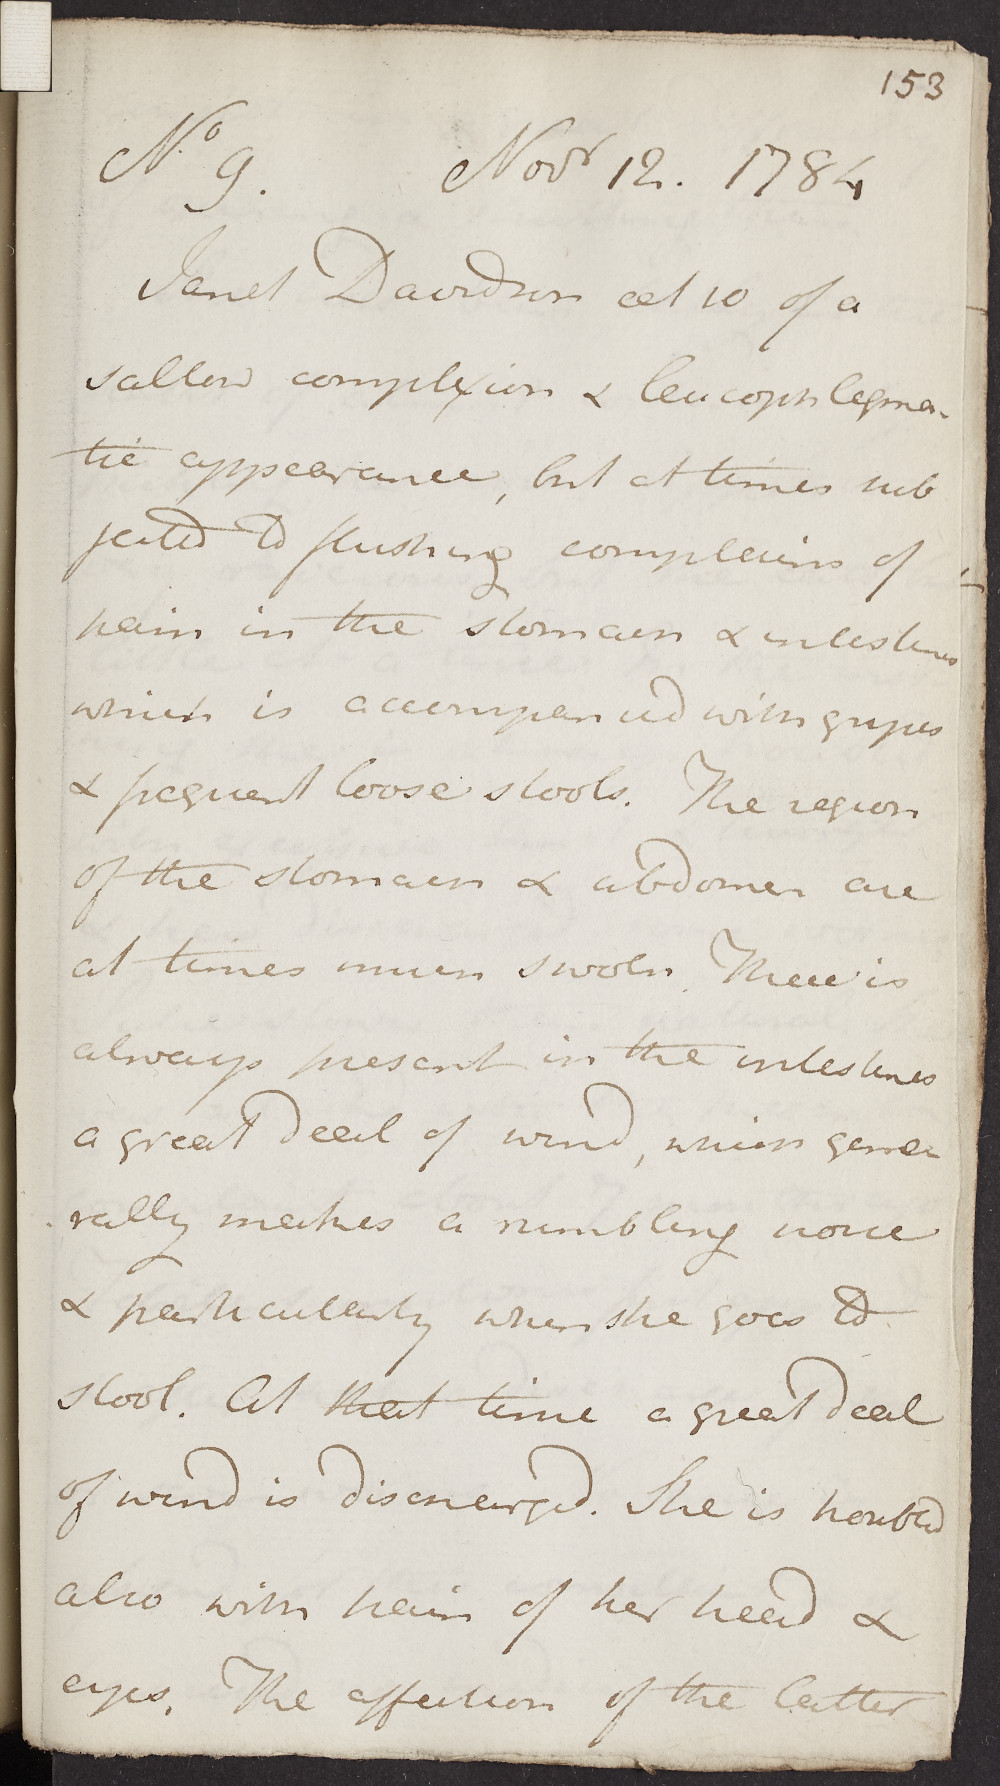 153
No 9. Novr 12. 1784
Janet Davidson aet 10 of a
sallow complexion & leucophlegma-
tic appearance, but at times sub
jected to flushing complains of
pain in the stomach & intestines
which is accompanied with gripes
& frequent loose stools. The region
of the stomach & abdomen are
at times much swoln. There is
always present in the intestines
a great deal of wind, which gene
rally makes a rumbling noise
& particularly when she goes to
stool. At that time a great deal
of wind is discharged. She is troubled
also with pain of her head &
eyes. The affection of the latter